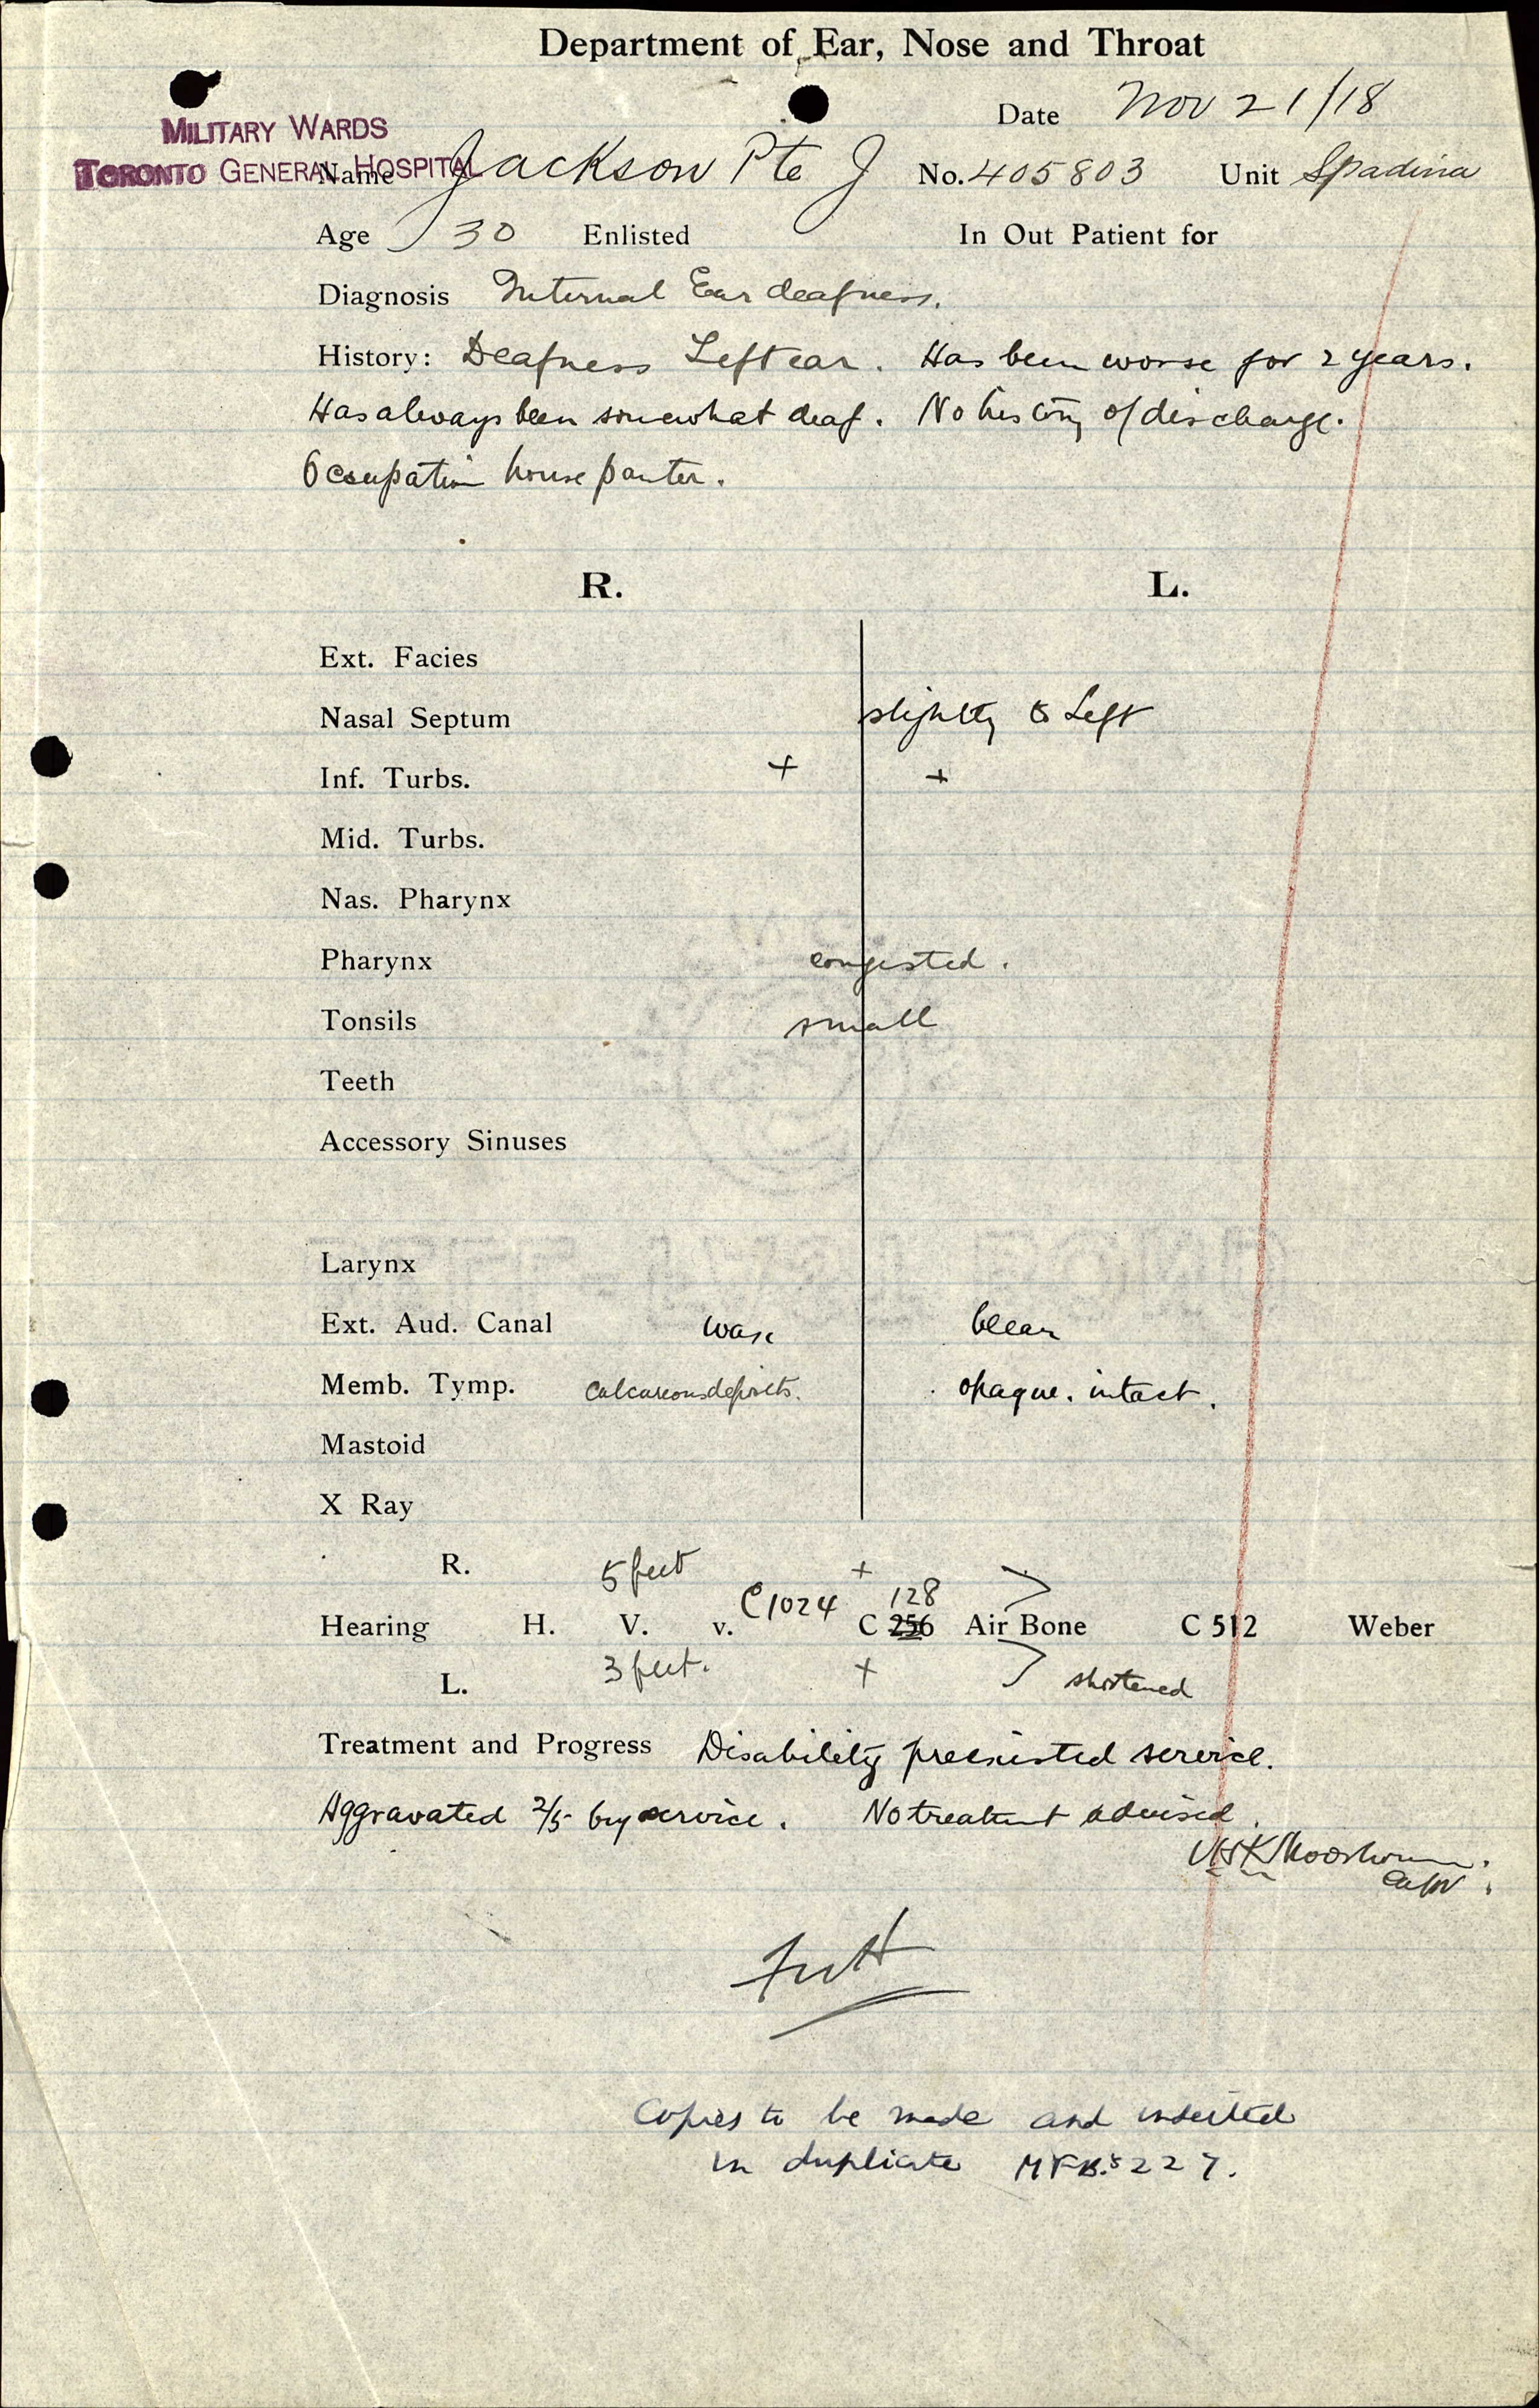 Department of Ear, Nose and Throat
MILITARY WARDS
TORONTO GENERAL HOSPITAL
Date Nov 21/18
Name Jackson Pte J No. 405803 Unit Spadina
Age 30 Enlisted In Out Patient for
Diagnosis Internal Ear deafness.
History: Deafness Left ear. Has been worse for 2 years.
Has always been somewhat deaf. No history of discharge.
Occupation house painter.
R. L.
Ext. Facies
Nasal Septum slightly to Left
Inf. Turbs. + +
Mid. Turbs.
Nas. Pharynx
Pharynx congested.
Tonsils small
Teeth
Accessory Sinuses
Larynx
Ext. Aud. Canal wax clear
Memb. Tymp. calcareous deposits. opaque. intact.
Mastoid
X Ray
R. 5 feet + >
C1024 128
Hearing H. V. v. C 256 Air Bone C 512 Weber
L. 3 feet. + > shortened
Treatment and Progress Disability preexisted service.
Aggravated 2/5 by service. No treatment advised.
Capt.
Copies to be made and inserted
in duplicate MFB.s 227.